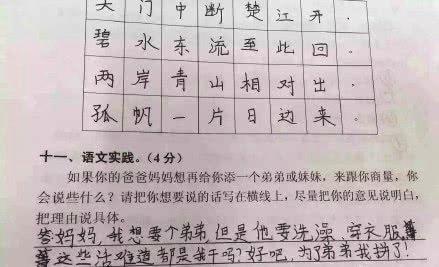 天门中断楚江开.
碧水东流至此回.
两岸青山相对出.
孤帆一片日边来.
十一、语文实践。(4分)
如果你的爸爸妈妈想再给你添一个弟弟或妹妹，来跟你商量，你
会说些什么？请把你想要说的话写在横线上，尽量把你的意见说明白，
把理由说具体。
答妈妈，我想要个弟弟，但是他要洗澡、穿衣服等
等这些活难道都是我干吗？好吧，为了弟弟我拼了！